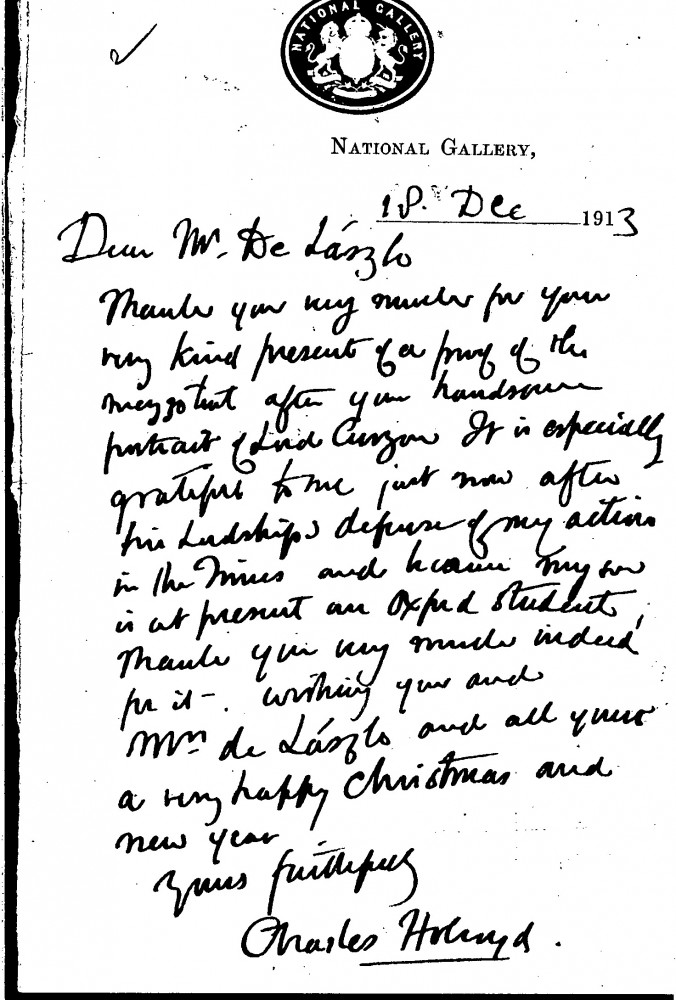 NATIONAL GALLERY
NATIONAL GALLERY,
18. Dec 1913
Dear Mr. De László
Thank you very much for your
very kind present of a proof of the
mezzotint after your handsome
portrait of Lord Curzon It is especially
grateful to me just now after
his Lordship's defense of my actions
in the Times and because my son
is at present an Oxford student,
Thank you very much indeed
for it -. Wishing you and
Mrs de László and all yours
a very happy Christmas and
new year
Yours faithfully
Charles Holroyd.